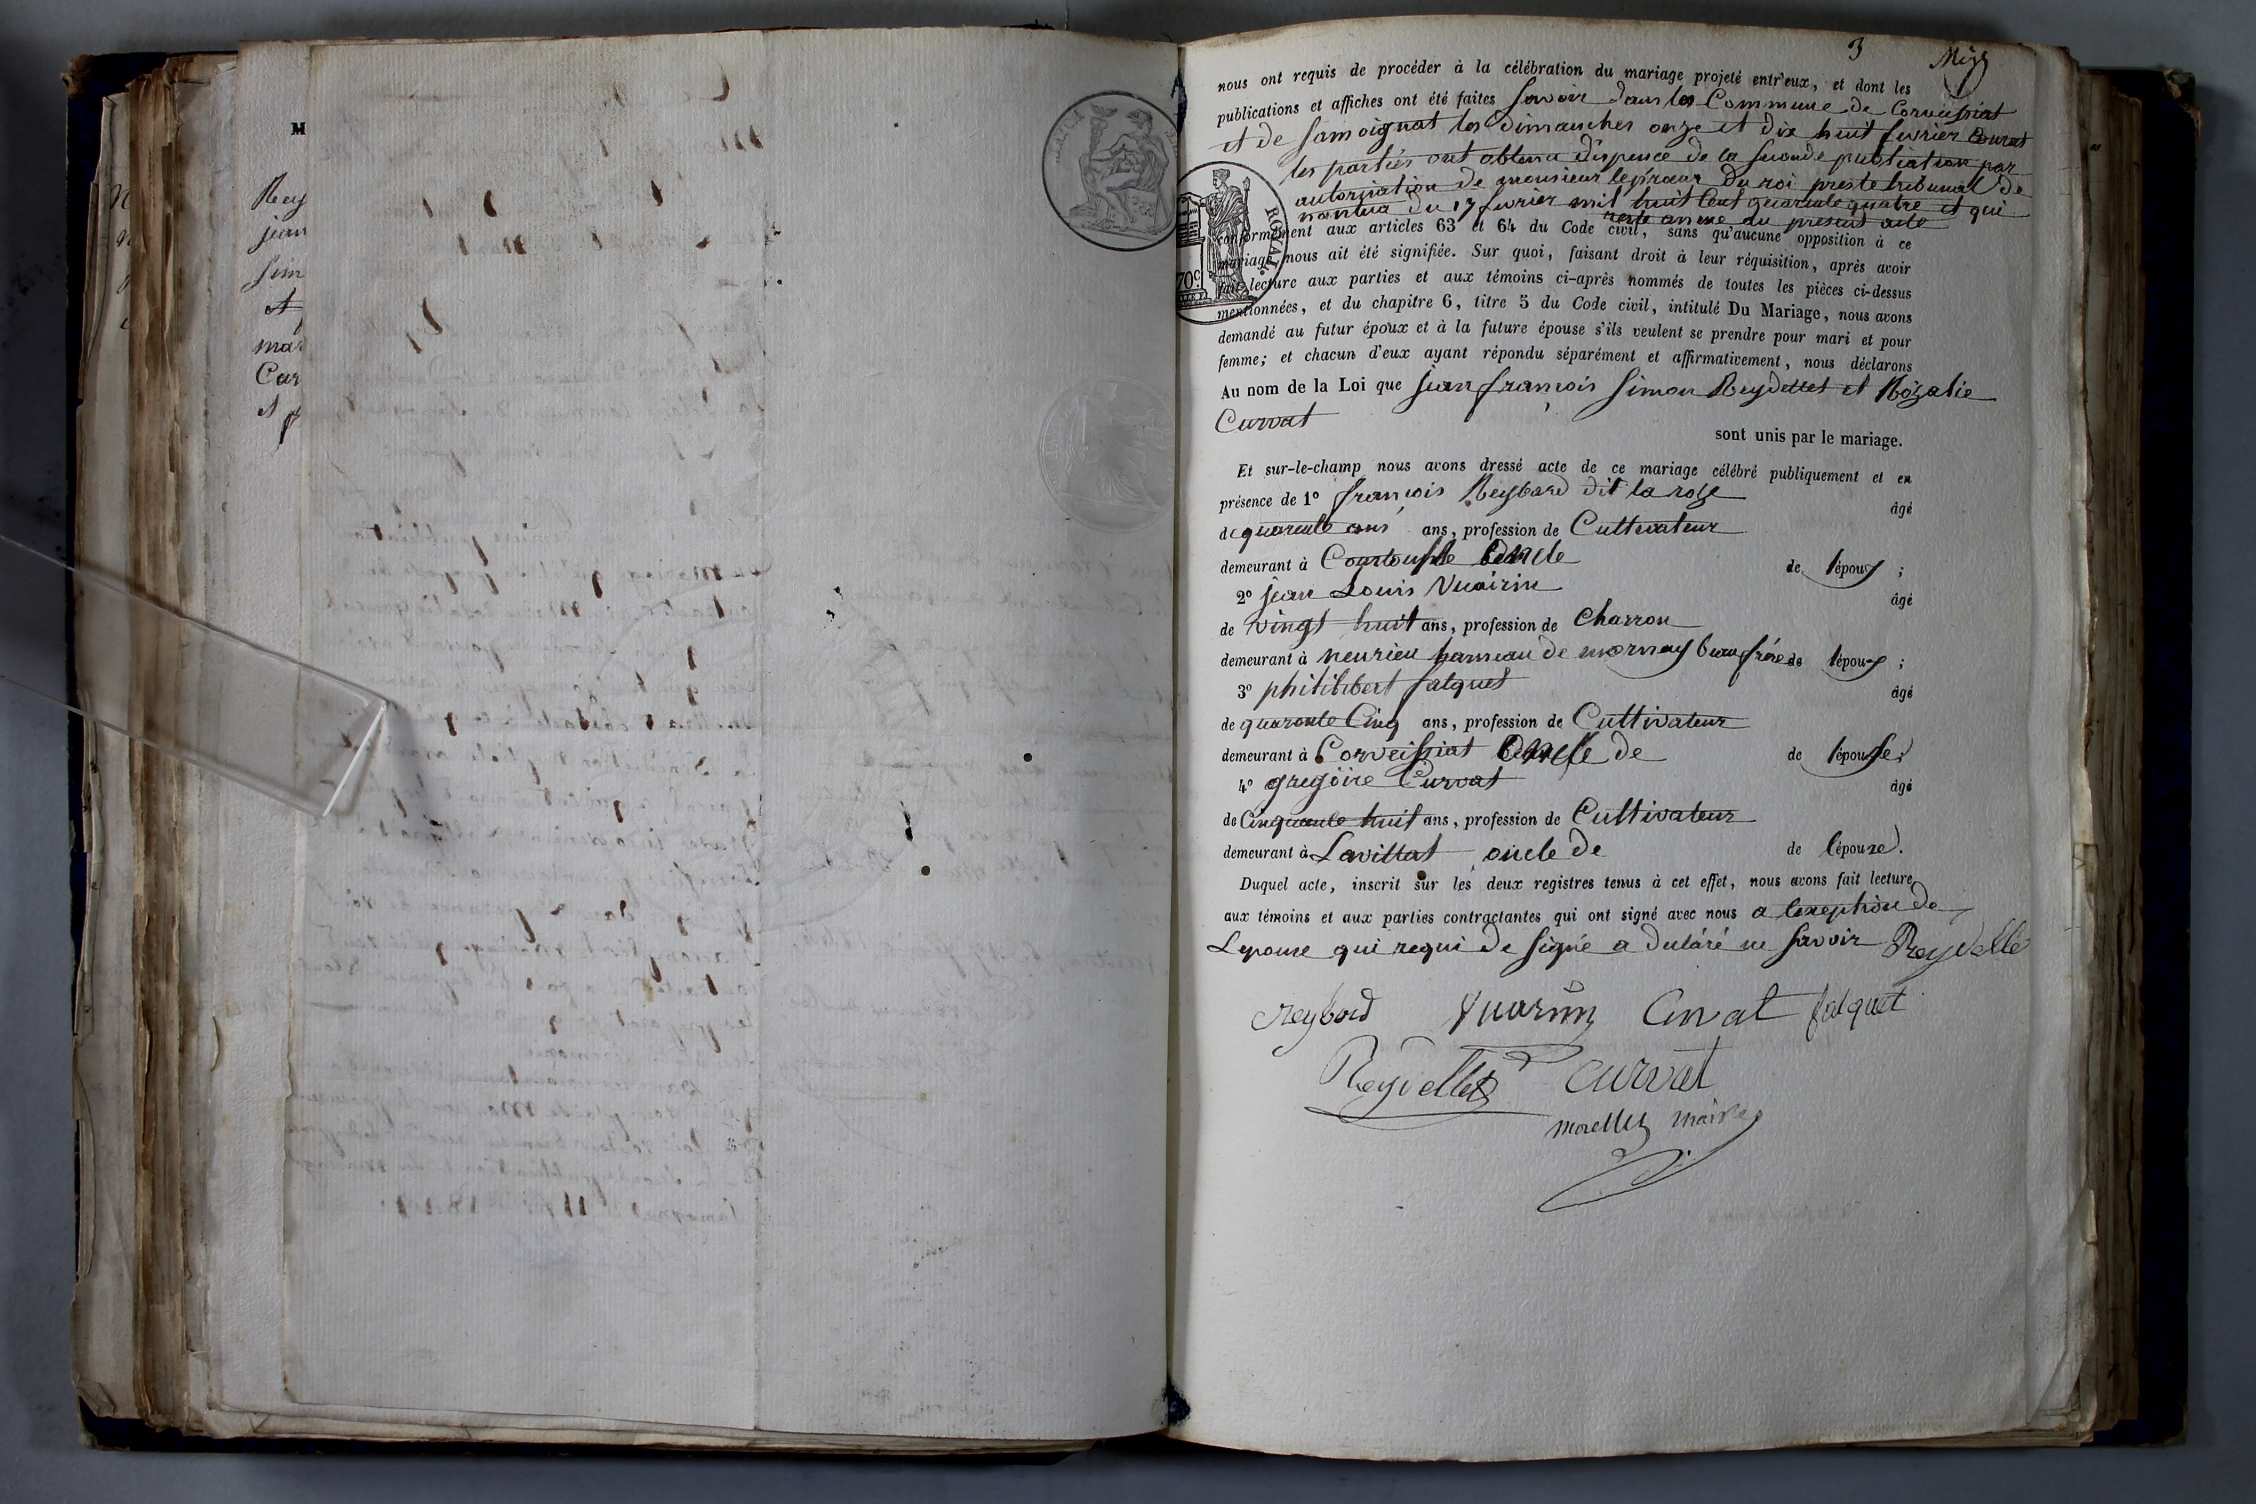 M
Rey
jean
Sim
et
mar
Car
et
3
nous ont requis de procéder à la célébration du mariage projeté entr'eux, et dont les
publications et affiches ont été faites Savoir dans les Commune de Corveissiat
et de Samoignat les Dimanches onze et dix huit fevrier Courat
les partiés ont obtenu dispence de la seconde publication par
autorisation de monsieur le pröcur du roi pres le tribunal de
nantua du 17 fevrier mil huit Cent quarente quatre et qui
reste anexe au present acte
conformément aux articles 63 et 64 du Code civil, sans qu'aucune opposition à ce
mariage nous ait été signifiée. Sur quoi, faisant droit à leur réquisition, après avoir
fait lecture aux parties et aux témoins ci-après nommés de toutes les pièces ci-dessus
mentionnées, et du chapitre 6, titre 5 du Code civil, intitulé Du Mariage, nous avons
demandé au futur époux et à la future épouse s'ils veulent se prendre pour mari et pour
femme; et chacun d'eux ayant répondu séparément et affirmativement, nous déclarons
Au nom de la Loi que jean françois Simon Reydellet et Rózalie
Curvat
sont unis par le mariage.
Et sur-le-champ nous avons dressé acte de ce mariage célébré publiquement et en
présence de 1º françois Reybard dit la roze
âgé
de quarente ans ans, profession de Cultivateur
demeurant à Courtouphle Oncle de l'époux ;
2º jean Louis Vuairin
âgé
de vingt huit ans, profession de Charron
demeurant à neurieu hameau de mornay beaufrére de l'époux ;
3º philibert falquet
âgé
de quarente Cinq ans, profession de Cultivateur
demeurant à Corveissiat Oncle de de l'épouse;
4º gregoire Curvat
âgé
de Cinquante huit ans, profession de Cultivateur
demeurant à Lavillat oncle de de l'épouse.
Duquel acte, inscrit sur les deux registres tenus à cet effet, nous avons fait lecture
aux témoins et aux parties contractantes qui ont signé avec nous a lexeption de
Lepouse qui requi de signé a déclaré ne savoir Reydelle
reybard Vuarin Curvat falquet
Reydellet Curvat
morellet maire
ROYAL
70 c.